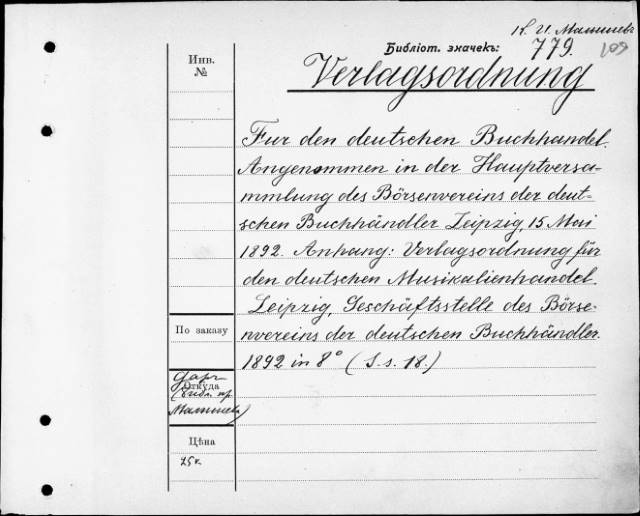 К. И. Малышев
Библіот. значекъ: 779. 109
Verlagsordnung
Инв.
№
Fur den deutschen Buchhandel.
Angenommen in der Hauptversa-
mmlung des Börsenvereins der deut-
schen Buchhändler Leipzig, 15 Mai
1892. Anhang: Verlagsordnung für
den deutschen Musikalienhandel.
Leipzig, Geschäftsstelle des Börse-
nvereins der deutschen Buchhändler.
1892 in 8° (S. s. 18.)
По заказу
Даръ
Откуда
(библ. пр.
Малышева)
Цѣна
25к.